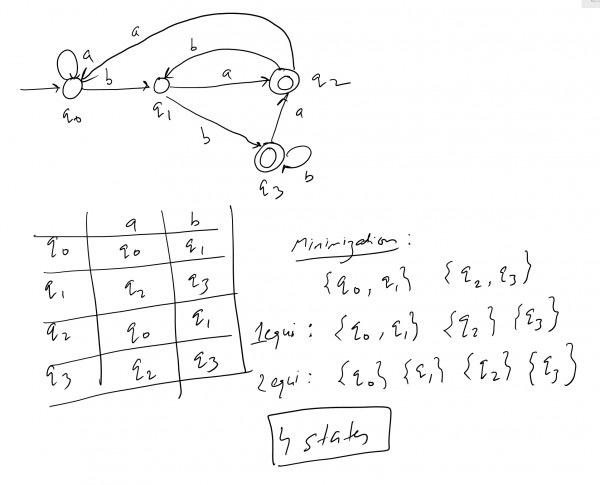 a
a
b
b
a
q0
q1
q2
b
a
q3
b
a b
q0 q0 q1
q1 q2 q3
q2 q0 q1
q3 q2 q3
Minimization :
{q0, q1} {q2, q3}
1equi : {q0, q1} {q2} {q3}
2equi : {q0} {q1} {q2} {q3}
4 states